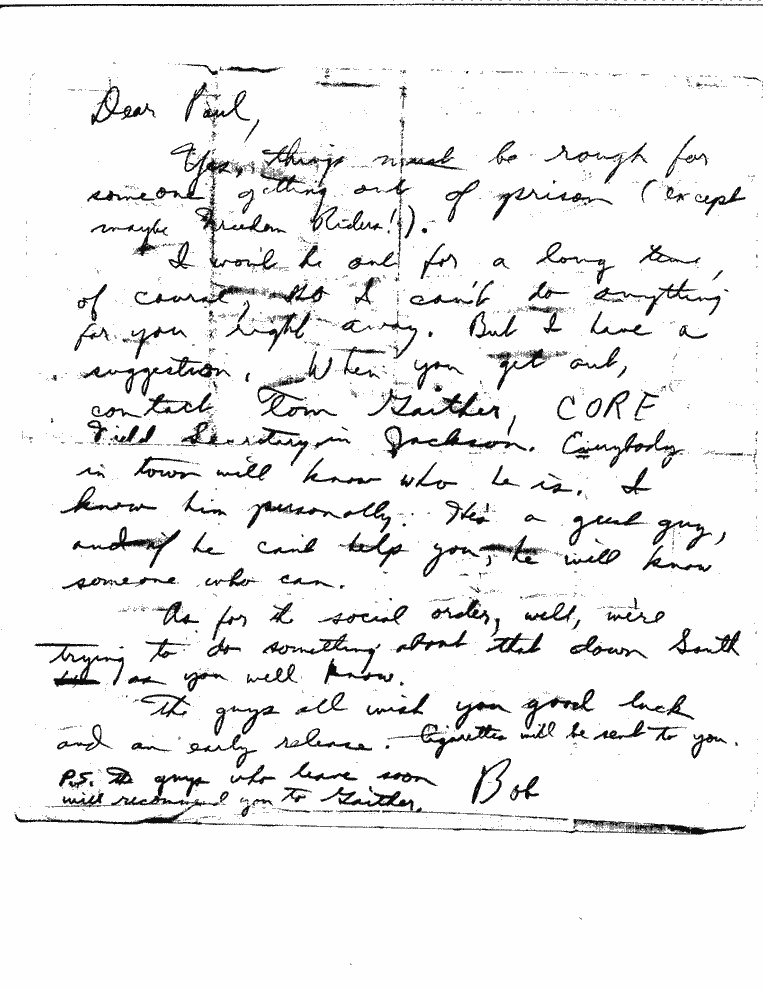 Dear Paul,
Yes, things must be rough for
someone getting out of prison (except
maybe Freedom Riders!).
I won't be out for a long time,
of course, so I can't do anything
for you right away. But I have a
suggestion. When you get out,
contact Tom Gaither, CORE
Field Secretary in Jackson. Everybody
in town will know who he is. I
know him personally. He's a great guy,
and if he can't help you, he will know
someone who can.
As for the social order, well, we're
trying to do something about that down South
as you well know.
The guys all wish you good luck
and an early release. Cigarettes will be sent to you.
P.S. The guys who leave soon Bob
will recommend you to Gaither.